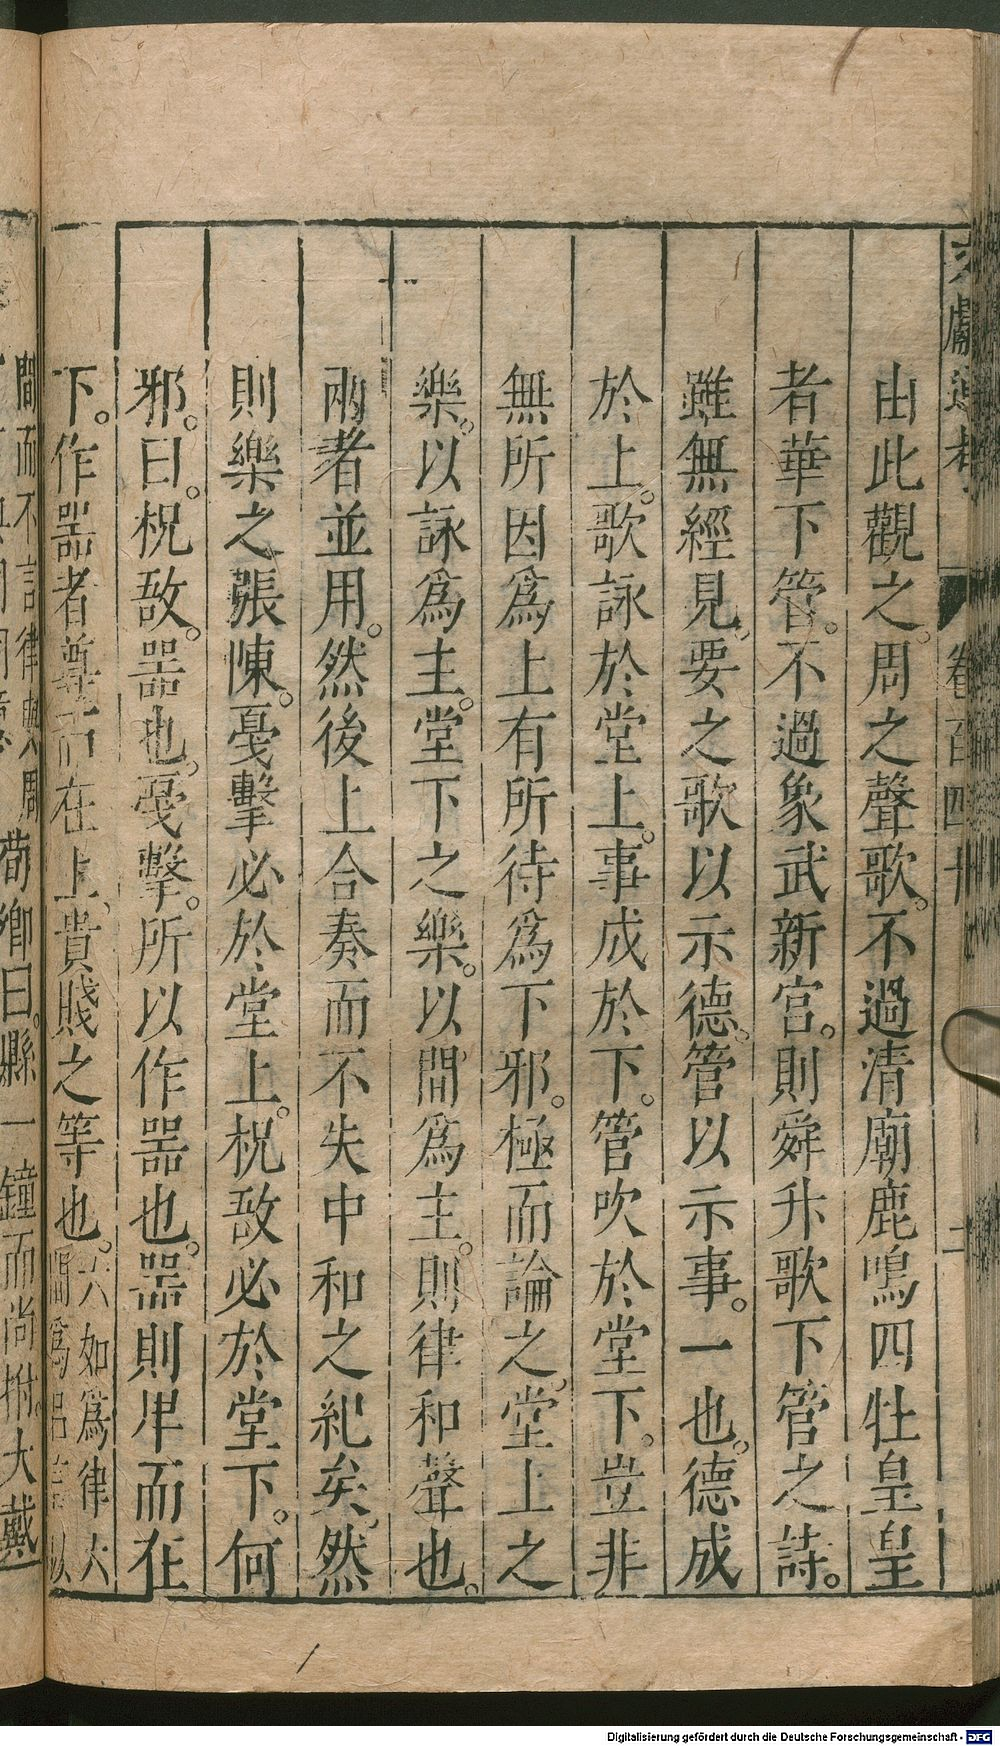 文獻通考 卷百四十 二
由此觀之。周之聲歌。不過清廟鹿鳴四牡皇皇
者華下管。不過象武新宮。則舜升歌下管之詩。
雖無經見。要之歌以示德。管以示事。一也。德成
於上。歌詠於堂上。事成於下。管吹於堂下。豈非
無所因為上有所待為下邪。極而論之。堂上之
樂。以詠為主。堂下之樂。以間為主。則律和聲也。
兩者並用。然後上合奏而不失中和之紀矣。然
則樂之張陳。戛擊必於堂上。柷敔必於堂下。何
邪。曰。柷敔。器也。戛擊。所以作器也。器則卑而在
下。作器者尊而在上。貴賤之等也。六如為律六
間為呂
間而不言律與
荀卿曰。縣一鐘而尚拊。大戴
Digitalisierung gefördert durch die Deutsche Forschungsgemeinschaft - DFG